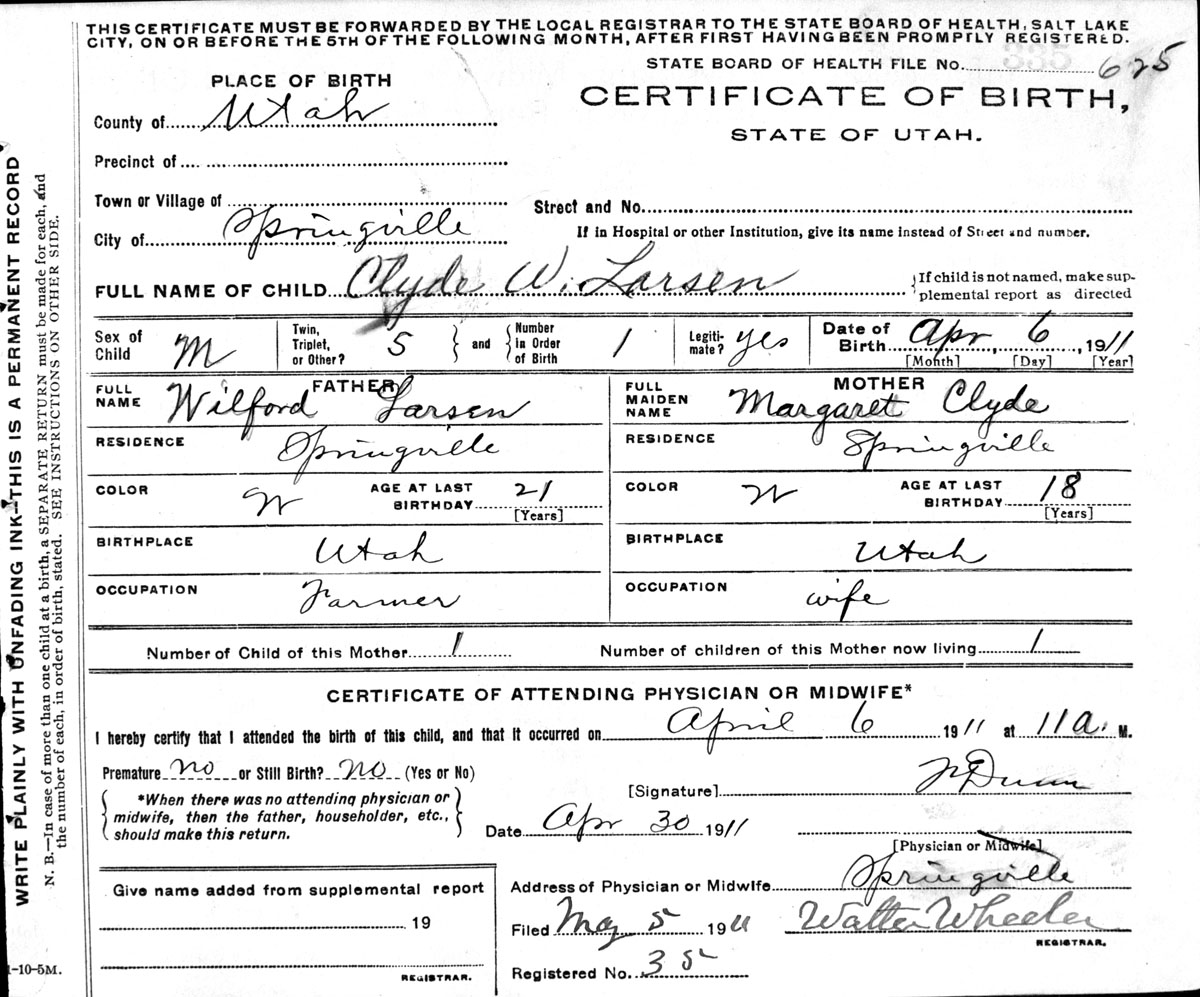 THIS CERTIFICATE MUST BE FORWARDED BY THE LOCAL REGISTRAR TO THE STATE BOARD OF HEALTH, SALT LAKE
CITY, ON OR BEFORE THE 5TH OF THE FOLLOWING MONTH, AFTER FIRST HAVING BEEN PROMPTLY REGISTERED.
STATE BOARD OF HEALTH FILE NO. 335 625
PLACE OF BIRTH
CERTIFICATE OF BIRTH,
STATE OF UTAH.
County of Utah
Precinct of
Town or Village of
Street and No.
City of Springville
If in Hospital or other Institution, give its name instead of Street and number.
FULL NAME OF CHILD Clyde W. Larsen
If child is not named, make sup-
plemental report as directed
Sex of Child M
Twin, Triplet, or Other? S and Number in Order of Birth 1
Legiti-mate? yes
Date of Birth Apr, 6, 1911
[Month] [Day] [Year]
FATHER
FULL NAME Wilford Larsen
RESIDENCE Springville
COLOR W AGE AT LAST BIRTHDAY 21
[Years]
BIRTHPLACE Utah
OCCUPATION Farmer
MOTHER
FULL MAIDEN NAME Margaret Clyde
RESIDENCE Springville
COLOR W AGE AT LAST BIRTHDAY 18
[Years]
BIRTHPLACE Utah
OCCUPATION wife
Number of Child of this Mother 1 Number of children of this Mother now living 1
CERTIFICATE OF ATTENDING PHYSICIAN OR MIDWIFE*
I hereby certify that I attended the birth of this child, and that it occurred on April 6 1911 at 11 a. M.
Premature no or Still Birth? NO (Yes or No)
*When there was no attending physician or
midwife, then the father, householder, etc.,
should make this return.
[Signature] Dunn
Date Apr 30 1911
[Physician or Midwife]
Address of Physician or Midwife Springville
Give name added from supplemental report
19
REGISTRAR.
Filed May 5 1911 Walter Wheeler
REGISTRAR.
Registered No. 35
1-10-5M.
WRITE PLAINLY WITH UNFADING INK—THIS IS A PERMANENT RECORD
N. B.—In case of more than one child at a birth, a SEPARATE RETURN must be made for each, and
the number of each, in order of birth, stated. SEE INSTRUCTIONS ON OTHER SIDE.